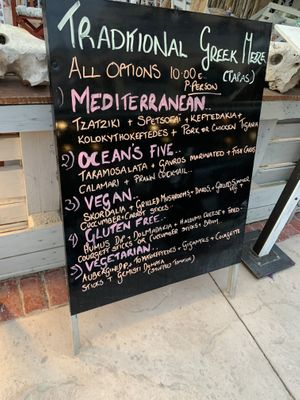 TRADITIONAL GREEK MEZE
(TAPAS)
ALL OPTIONS 10.00 E.
P. PERSON
1) MEDITERRANEAN..
TZATZIKI + SPETSOFAI + KEPTEDAKIA +
KOLOKYTHOKEFTEDES + PORK OR CHICKEN TIGANIA
2) OCEAN'S FIVE..
TARAMOSALATA + GAVROS MARINATED + FISH
CALAMARI + PRAWN COCKTAIL...
3) VEGAN..
SKORDALIA + GRILLED MUSHROOMS +
CUCUMBER + CARROT STICKS.
4) GLUTEN FREE..
HUMUS DIP + DOLMADAKIA + HALOUMI CHEESE +
COURGETTE STICKS OR CUCUMBER STICKS +
5) VEGETARIAN..
TOMATOKEFTEDES + GIGANTES + COURGETTE
STICKS + GEMISTI DOMATA (STUFFED TOMATOE)